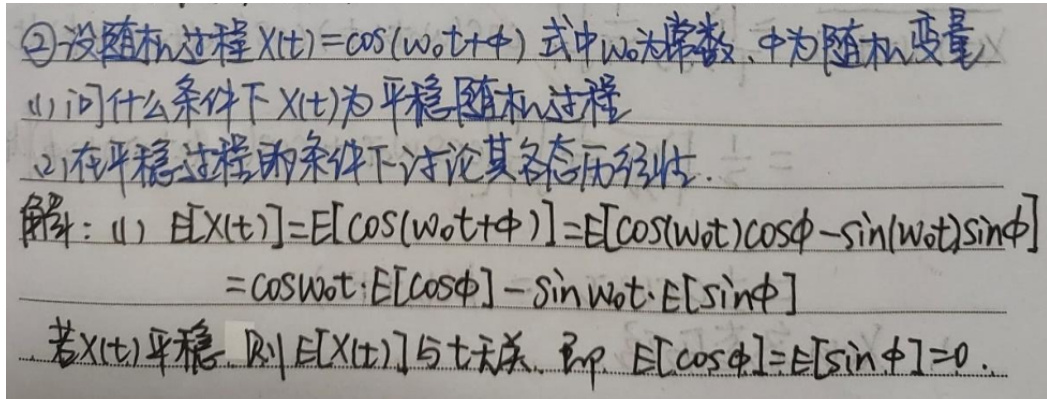 ②设随机过程X(t)=cos(ω₀t+φ)式中ω₀为常数、φ为随机变量
(1)问什么条件下X(t)为平稳随机过程
(2)在平稳过程的条件下讨论其各态历经性.
解: (1) E[X(t)]=E[cos(ω₀t+φ)]=E[cos(ω₀t)cosφ-sin(ω₀t)sinφ]
=cosω₀t·E[cosφ]-sinω₀t·E[sinφ]
若X(t)平稳、则E[X(t)]与t无关、即 E[cosφ]=E[sinφ]=0.